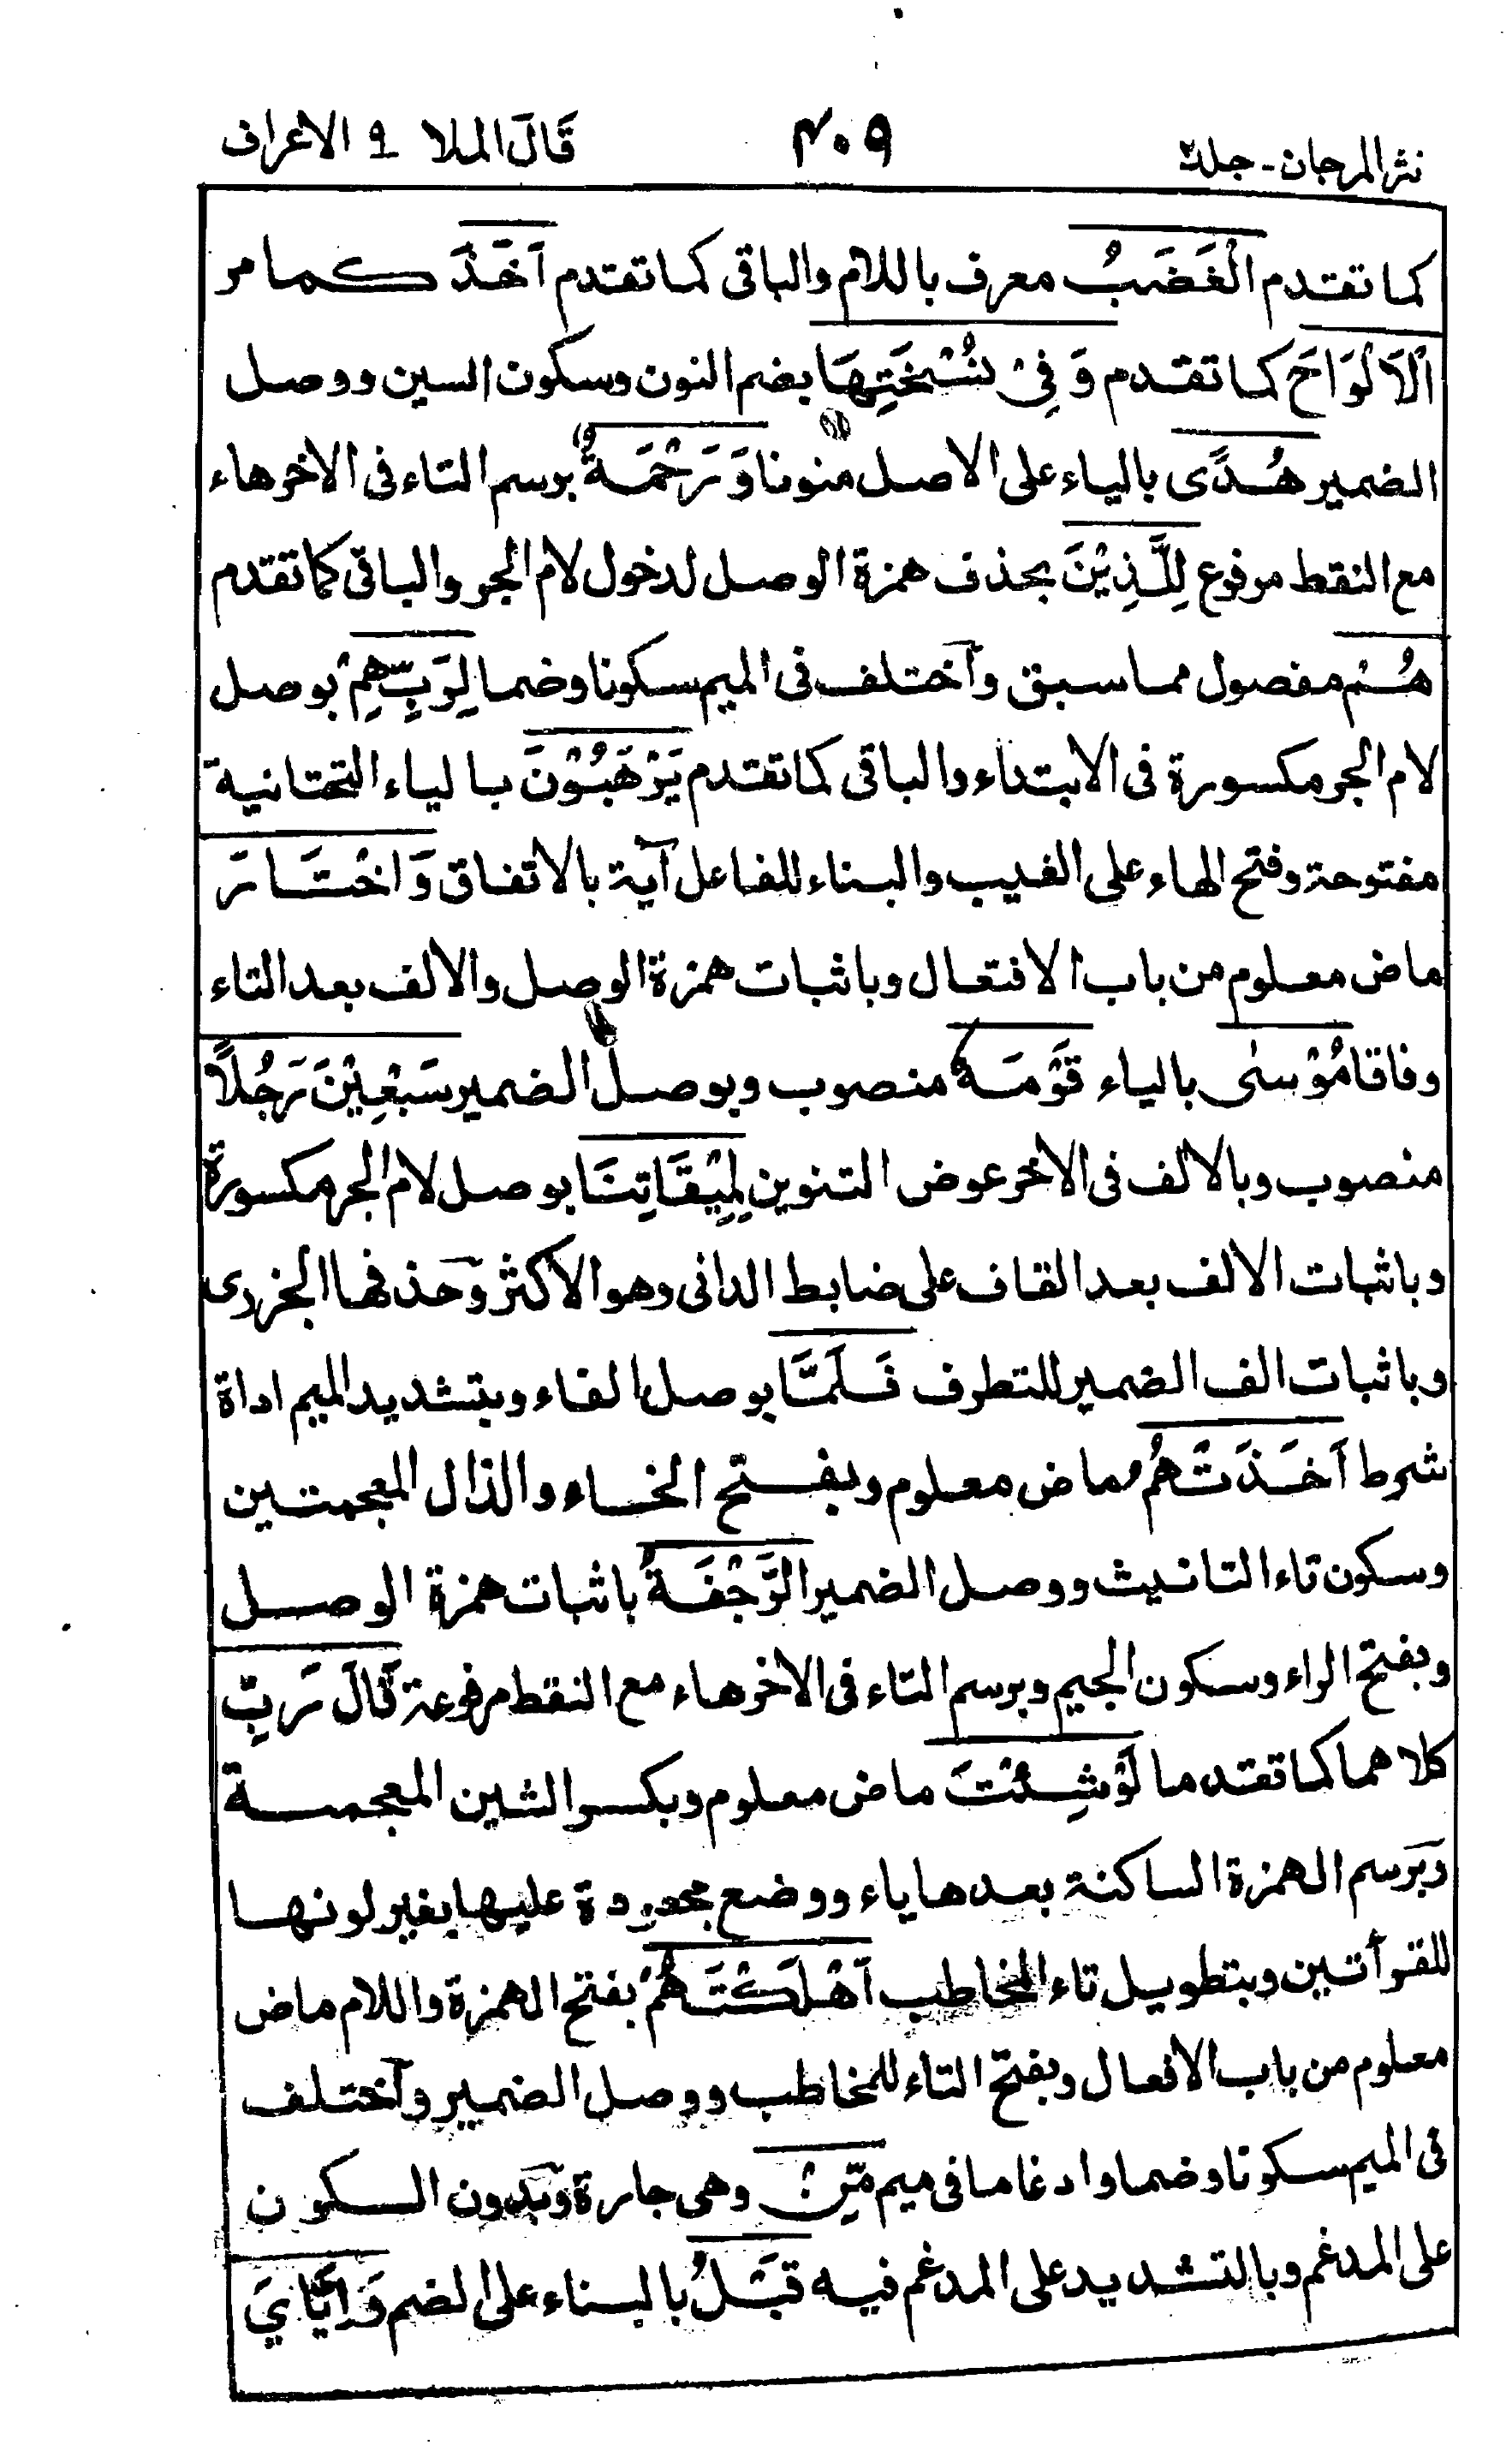 نثر المرجان - جلد ٢ ٣٠٩ قَالَ الملا ٩ الاعراف
كما تقدم الْغَضَبُ معرف باللام والباقى كما تقدم اَخَذَ كما مر
الْاَلْوَاحَ كما تقدم وَفِىْ نُسْخَتِهَا بضم النون وسكون السين ووصل
الضمير هُدًى بالياء على الاصل منونا وَرَحْمَةٌ برسم التاء فى الاخر هاء
مع النقط مرفوع لِلَّذِيْنَ بحذف همزة الوصل لدخول لام الجر والباقى كما تقدم
هُمْ مفصول مما سبق وآختلف فى الميم سكونا وضما لِرَبِّهِمْ بوصل
لام الجر مكسورة فى الابتداء والباقى كما تقدم يَرْهَبُوْنَ بالياء التحتانية
مفتوحة وفتح الهاء على الغيب والبناء للفاعل آية بالاتفاق وَاخْتَارَ
ماض معلوم من باب الافتعال وباثبات همزة الوصل والالف بعد التاء
وفاقا مُوْسٰى بالياء قَوْمَهٗ منصوب وبوصل الضمير سَبْعِيْنَ رَجُلًا
منصوب وبالالف فى الاخر عوض التنوين لِمِيْقَاتِنَا بوصل لام الجر مكسورة
وباثبات الالف بعد القاف على ضابط الدانى وهو الاكثر وحذفها الجزرى
وباثبات الف الضمير للتطرف فَلَمَّا بوصل الفاء وبتشديد الميم اداة
شرط اَخَذَتْهُمُ ماض معلوم وبفتح الخاء والذال المعجمتين
وسكون تاء التانيث ووصل الضمير الرَّجْفَةُ باثبات همزة الوصل
وبفتح الراء وسكون الجيم وبرسم التاء فى الاخر هاء مع النقط مرفوعة قَالَ رَبِّ
كلاهما كما تقدما لَوْ شِئْتَ ماض معلوم وبكسر الشين المعجمة
وبرسم الهمزة الساكنة بعدها ياء ووضع مجرورة عليها بغير لونها
للقرأتين وبتطويل تاء المخاطب اَهْلَكْتَهُمْ بفتح الهمزة واللام ماض
معلوم من باب الافعال وبفتح التاء للمخاطب ووصل الضمير وآختلف
فى الميم سكونا وضما وادغاما فى ميم مِّنْ وهى جارة وبدون السكون
على المدغم وبالتشديد على المدغم فيه قَبْلُ بالبناء على الضم وَاِيَّايَ